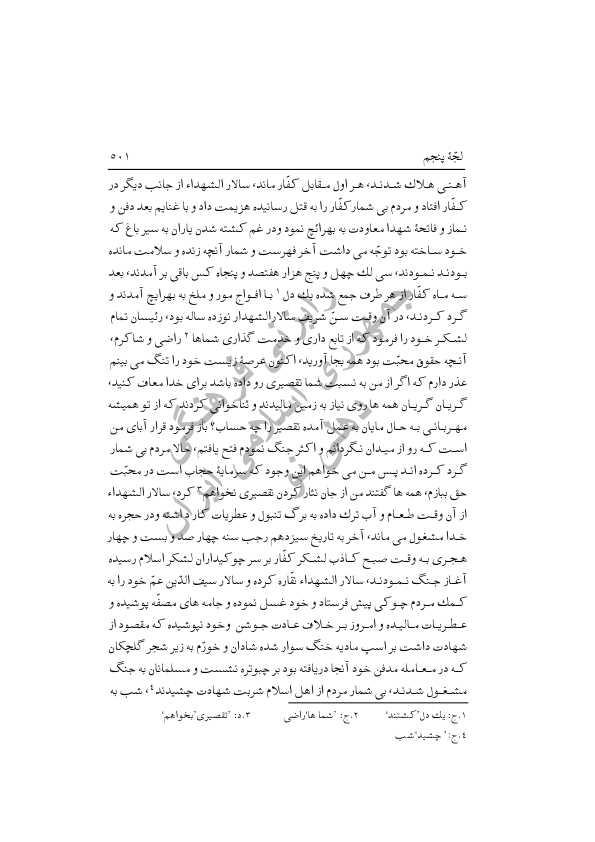 لجّهٔ پنجم ۵۰۱
آهنی هلاك شدند، هر اول مقابل كفّار ماند، سالار الشهداء از جانب دیگر در
كفّار افتاد و مردم بی شمار كفّار را به قتل رسانیده هزیمت داد و با غنایم بعد دفن و
نماز و فاتحهٔ شهدا معاودت به بهرائچ نمود ودر غم كشته شدن یاران به سیر باغ كه
خود ساخته بود توجّه می داشت آخر فهرست و شمار آنچه زنده و سلامت مانده
بودند نمودند، سی لك چهل و پنج هزار هفتصد و پنجاه كس باقی بر آمدند، بعد
سه ماه كفّار از هر طرف جمع شده یك دل۱ با افواج مور و ملخ به بهرایچ آمدند و
گرد كردند، در آن وقت سنّ شریف سالارالشهدار نوزده ساله بود، رئیسان تمام
لشكر خود را فرمود كه از تابع داری و خدمت گذاری شماها۲ راضی و شاكرم،
آنچه حقوق محبّت بود همه بجا آورید، اكنون عرصهٔ زیست خود را تنگ می بینم
عذر دارم كه اگر از من به نسبت شما تقصیری رو داده باشد برای خدا معاف كنید،
گریان گریان همه ها روی نیاز به زمین مالیدند و ثناخوانی كردند كه از تو همیشه
مهربانی به حال مایان به عمل آمده تقصیر را چه حساب؟ باز فرمود قرار آبای من
است كه رو از میدان نگردانم و اكثر جنگ نمودم فتح یافتم، حالا مردم بی شمار
گرد كرده اند پس من می خواهم این وجود كه سرمایهٔ حجاب است در محبّت
حق ببازم، همه ها گفتند من از جان نثار كردن تقصیری نخواهم۳ كرد، سالار الشهداء
از آن وقت طعام و آب ترك داده به برگ تنبول و عطریات كار داشته ودر حجره به
خدا مشغول می ماند، آخر به تاریخ سیزدهم رجب سنه چهار صد و بست و چهار
هجری به وقت صبح كاذب لشكر كفّار بر سر چوكیداران لشكر اسلام رسیده
آغاز جنگ نمودند، سالار الشهداء نقّاره كرده و سالار سیف الدّین عمّ خود را به
كمك مردم چوكی پیش فرستاد و خود غسل نموده و جامه های مصفّه پوشیده و
عطریات مالیده و امروز بر خلاف عادت جوشن وخود نپوشیده كه مقصود از
شهادت داشت بر اسپ مادیه خنگ سوار شده شادان و خورّم به زیر شجر گلچكان
كه در معامله مدفن خود آنجا دریافته بود بر چبوتره نشست و مسلمانان به جنگ
مشغول شدند، بی شمار مردم از اهل اسلام شربت شهادت چشیدند۴، شب به
۱.ج: یك دل’كشتند‘ ۲.ج: ’شما ها‘راضی ۳.د: ’تقصیری‘بخواهم‘
۴.ج: ’ چشید‘شب
رایزنی فرهنگی
جمهوری اسلامی ایران
دهلی نو